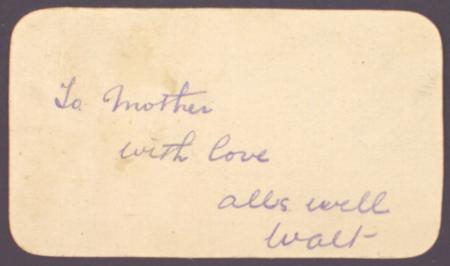 To Mother
with love
alls well
Walt